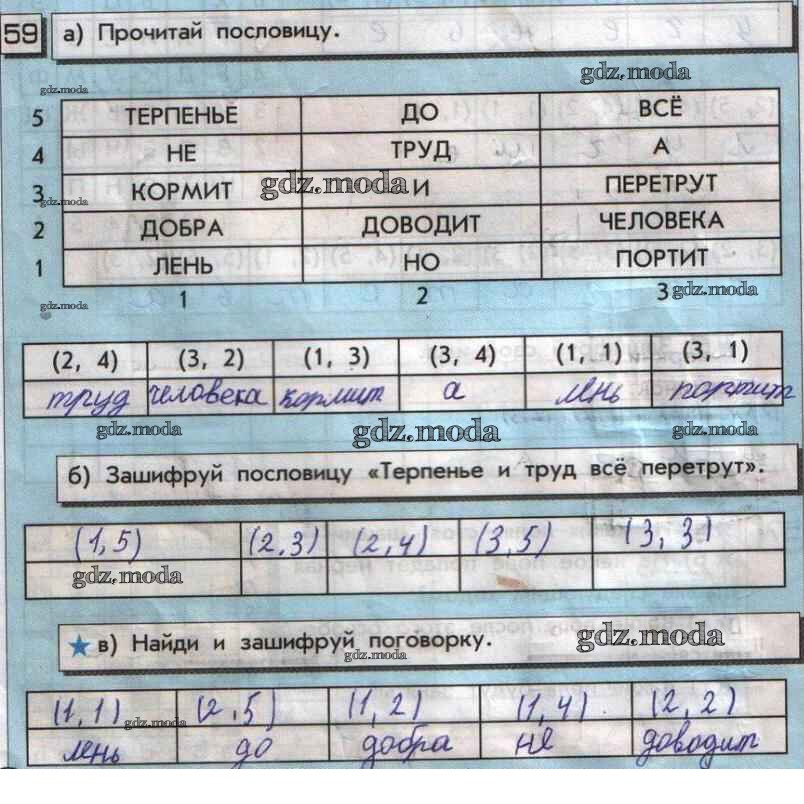 59 а) Прочитай пословицу.
gdz.moda
gdz.moda
5 ТЕРПЕНЬЕ ДО ВСЁ
4 НЕ ТРУД А
3 КОРМИТ gdz.moda И ПЕРЕТРУТ
gdz.moda
2 ДОБРА ДОВОДИТ ЧЕЛОВЕКА
1 ЛЕНЬ НО ПОРТИТ
gdz.moda 1 2 3 gdz.moda
(2, 4) (3, 2) (1, 3) (3, 4) (1, 1) (3, 1)
труд человека кормит а лень портит
gdz.moda gdz.moda gdz.moda
б) Зашифруй пословицу «Терпенье и труд всё перетрут».
(1,5) (2,3) (2,4) (3,5) (3,3)
gdz.moda
★ в) Найди и зашифруй поговорку. gdz.moda
gdz.moda
(1,1) gdz.moda (2,5) (1,2) (1,4) (2,2)
лень до добра не доводит